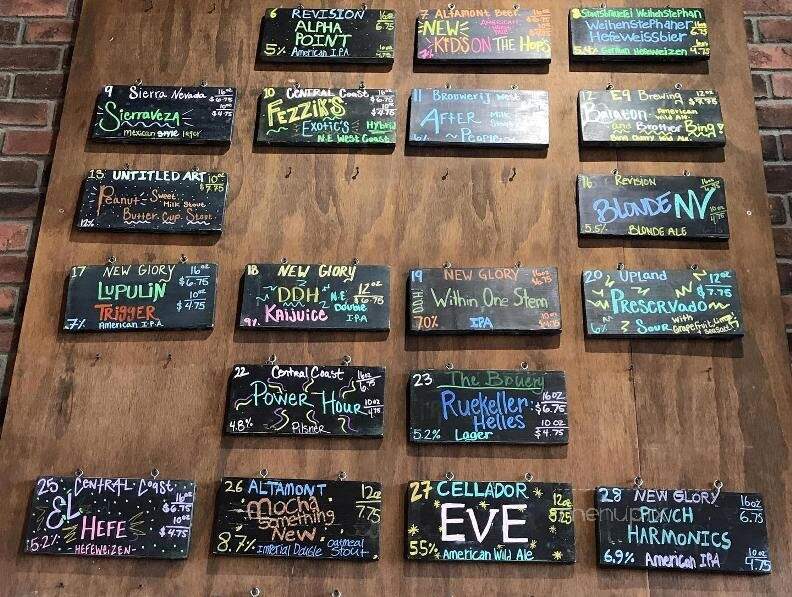 6 REVISION 16oz
ALPHA 6.75
POINT 10oz
5% American I.P.A 4.75
7 ALTAMONT Beer
NEW
KIDS ON THE HOPS
8 Staatsbrauerei Weihenstephan
Weihenstephaner 6.75
Hefeweissbier
5.4% German Hefeweizen 4.75
9 Sierra Nevada 16oz
$6.75
Sierraveza 10oz
$4.75
Mexican style lager
10 CENTRAL Coast 16oz
FEZZIK'S $6.75
Exotic's Hybrid
N.E West Coast
11 Brouwerij West
AFTER Milk Stout
~ People
12 E9 Brewing 12oz
American
Wild Ale
and Brother Bing!
13 UNTITLED ART 10oz
$7.75
Peanut Sweet
Milk Stout
Butter Cup Stout
12%
16 REVISION
BLONDE NV
5.5% BLONDE ALE 4.75
17 NEW GLORY 16oz
LUPULIN $6.75
TRIGGER 10oz
$4.75
7% American I.P.A
18 NEW GLORY
DDH N.E 12oz
Double $6.75
KAIJUICE I.P.A
9%
19 NEW GLORY 16oz
$6.75
DDH Within One Stem
7.0% IPA 10oz
$4.75
20 Upland 12oz
$7.75
PRESERVADO
6% Sour with
Grapefruit, Lime,
22 Central Coast 16oz
6.75
Power Hour 10oz
4.75
4.8% Pilsner
23 The Bruery
Ruekeller: 16oz
$6.75
Helles 10oz
5.2% Lager $4.75
25 CENTRAL Coast 16oz
EL $6.75
HEFE 10oz
$4.75
5.2% HEFEWEIZEN
26 ALTAMONT 12oz
Mocha 7.75
Something
New
8.7% Imperial Double Oatmeal
Stout
27 CELLADOR 12oz
EVE 8.25
5.5% American Wild Ale
28 NEW GLORY 16oz
PINCH 6.75
HARMONICS
6.9% American IPA 10oz
4.75